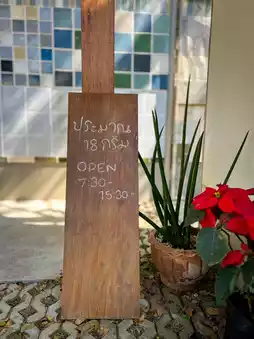 ประมาณ
18 กรัม
OPEN
7:30-
15:30-